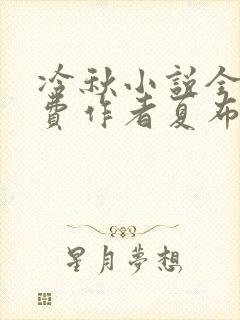 冷秋小説全
費作者夏布
星月夢想